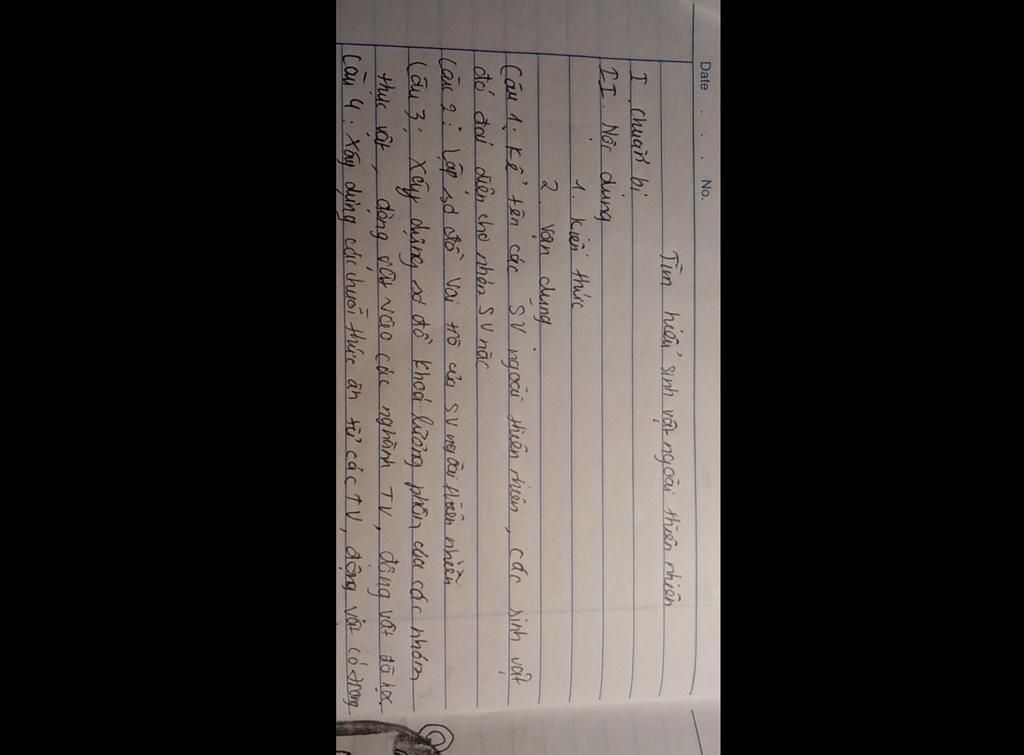 Date . . . No.
Tìm hiểu sinh vật ngoài thiên nhiên
I. Chuẩn bị
II. Nội dung
1. Kiến thức
2. Vận dụng
Câu 1: Kể tên các SV ngoài thiên nhiên, các sinh vật
đó đại diện cho nhóm SV nào
Câu 2: Lập sơ đồ vai trò của SV ngoài thiên nhiên
Câu 3: Xây dựng sơ đồ khoá lưỡng phân của các nhóm
thực vật, động vật vào các nghành TV, động vật đã học
Câu 4. Xây dựng các chuỗi thức ăn từ các TV, động vật có trong